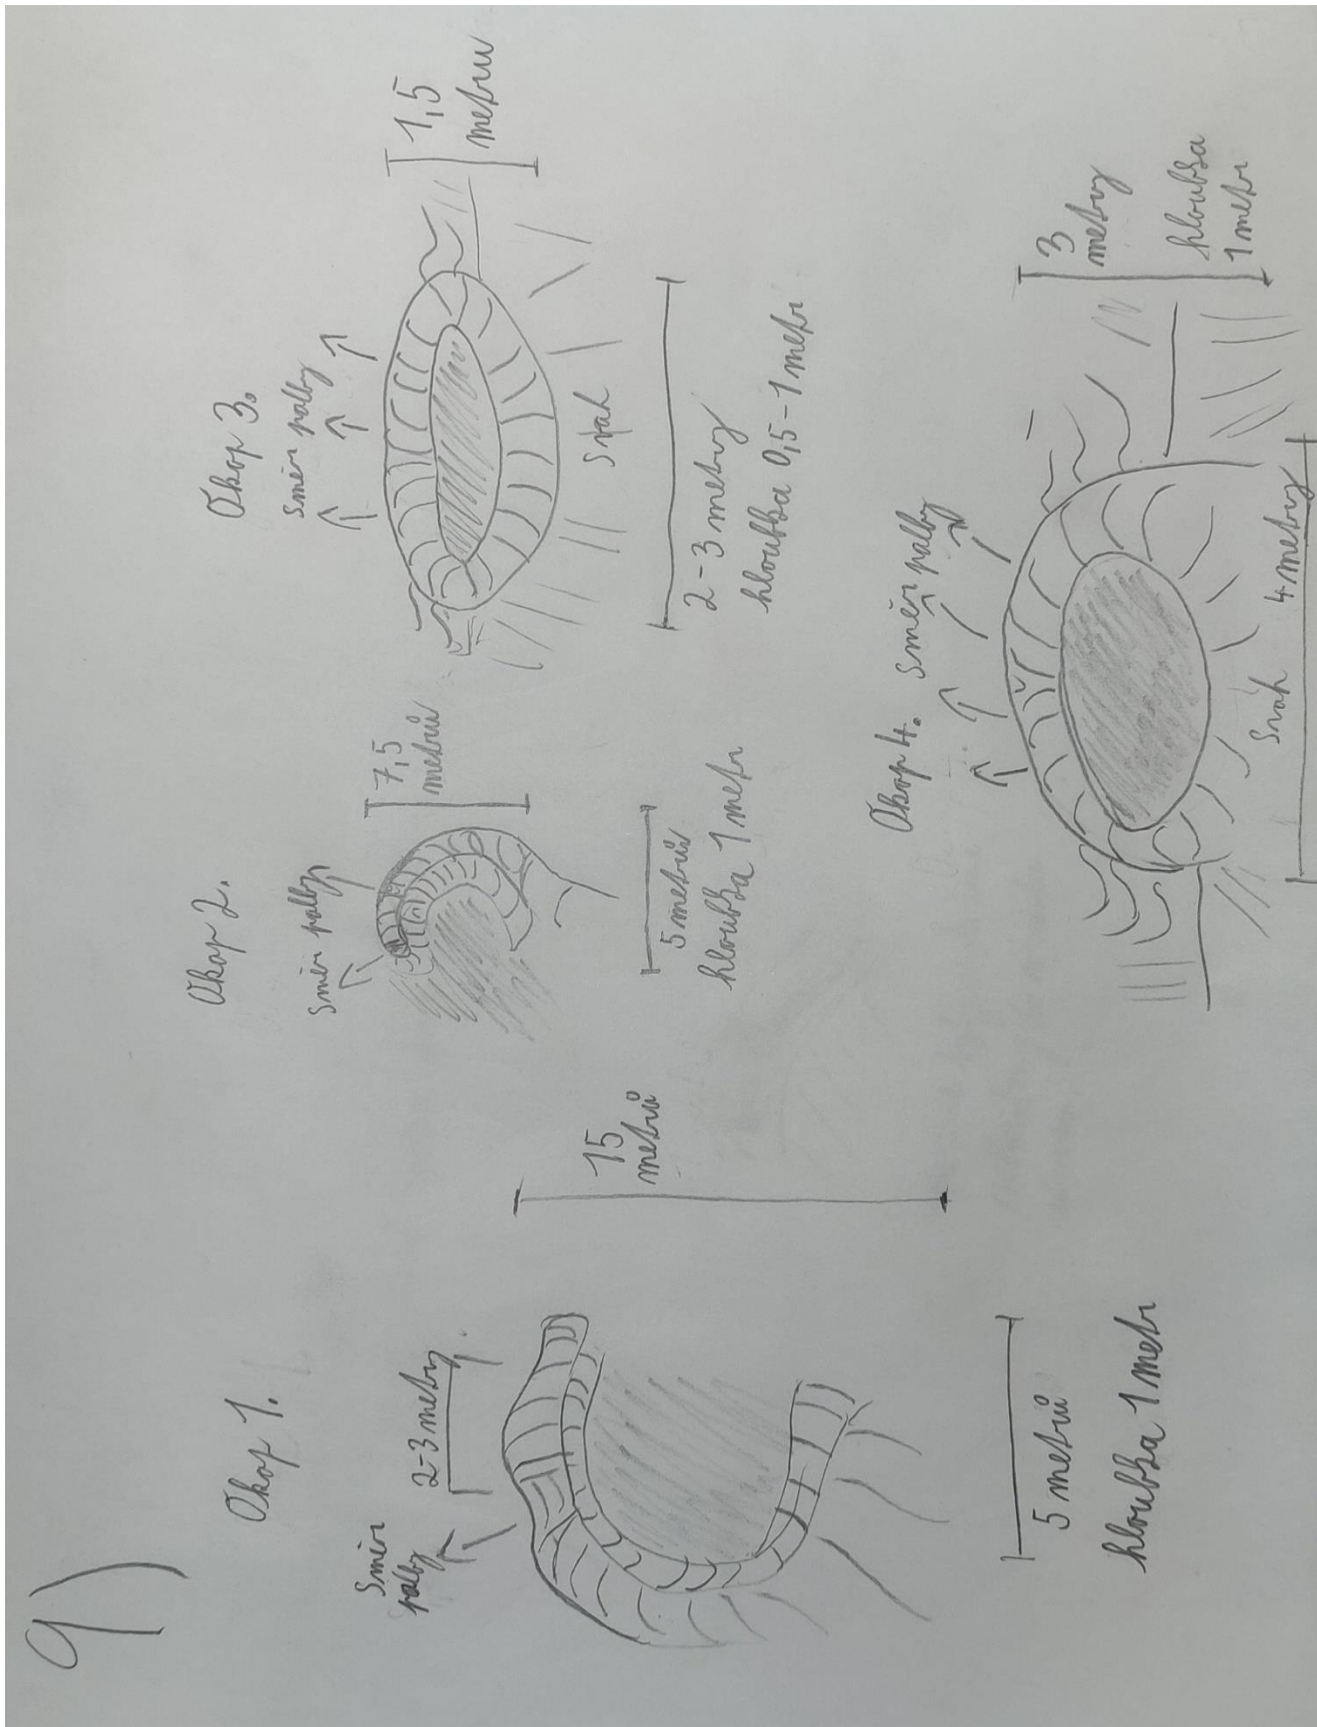 9)
Okop 1.
směr
palby
2-3 metry
15
metrů
5 metrů
hloubka 1 metr
Okop 2.
směr palby
7,5
metrů
5 metrů
hloubka 1 metr
Okop 3.
směr palby
1,5
metru
svah
2-3 metry
hloubka 0,5-1 metr
Okop 4.
směr palby
3
metry
hloubka
1 metr
Svah
4 metry